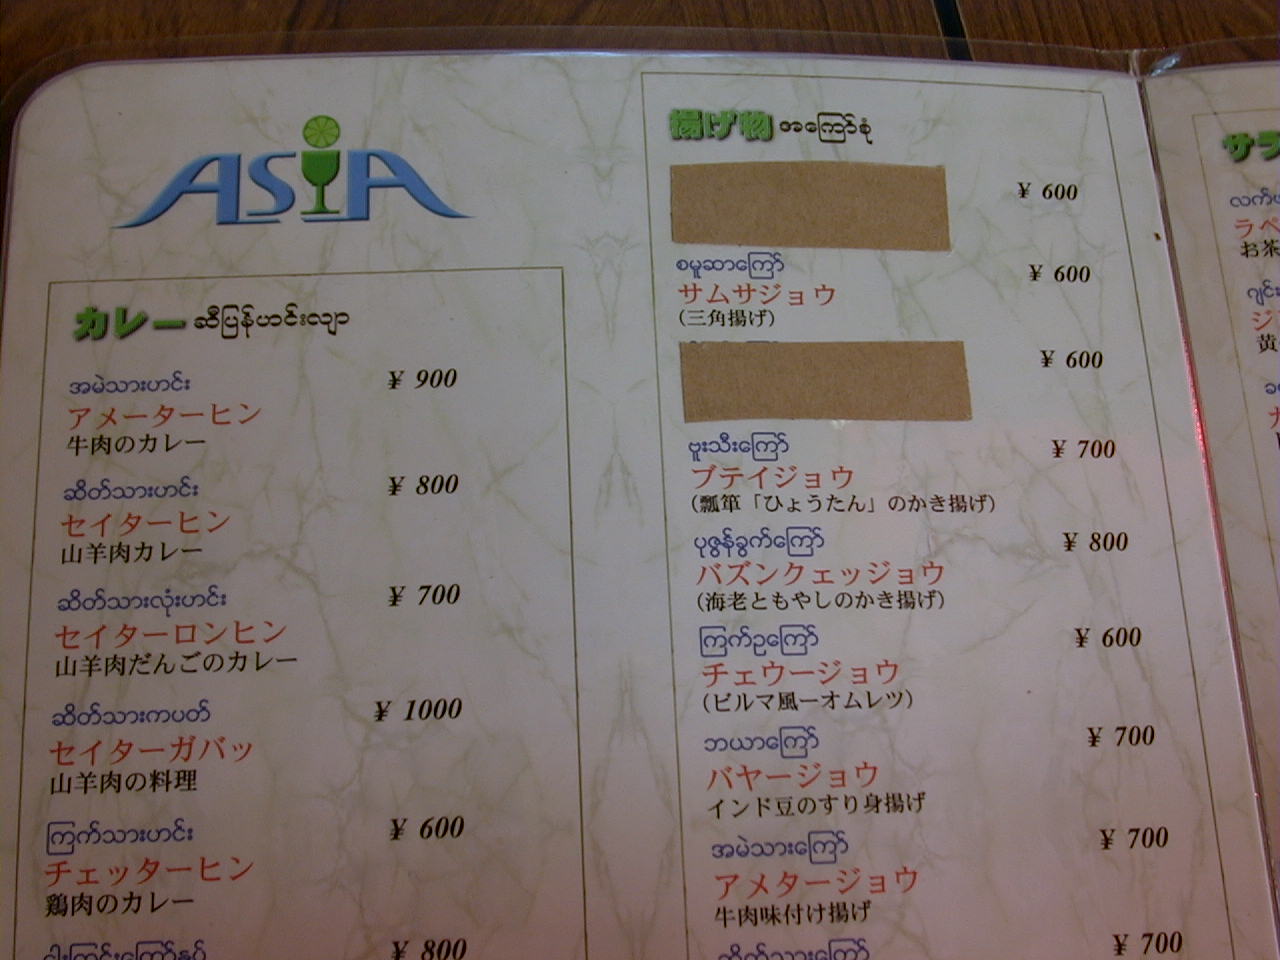 ASIA
カレー ဆီပြန်ဟင်းလျာ
အမဲသားဟင်း ¥ 900
アメーターヒン
牛肉のカレー
ဆိတ်သားဟင်း ¥ 800
セイターヒン
山羊肉カレー
ဆိတ်သားလုံးဟင်း ¥ 700
セイターロンヒン
山羊肉だんごのカレー
ဆိတ်သားကပတ် ¥ 1000
セイターガバッ
山羊肉の料理
ကြက်သားဟင်း ¥ 600
チェッターヒン
鶏肉のカレー
¥ 800
揚げ物 အကြော်စုံ
¥ 600
စမူဆာကြော် ¥ 600
サムサジョウ
(三角揚げ)
¥ 600
ဗူးသီးကြော် ¥ 700
ブテイジョウ
(瓢箪「ひょうたん」のかき揚げ)
ပုဇွန်ခွက်ကြော် ¥ 800
バズンクェッジョウ
(海老ともやしのかき揚げ)
ကြက်ဥကြော် ¥ 600
チェウージョウ
(ビルマ風ーオムレツ)
ဘယာကြော် ¥ 700
バヤージョウ
インド豆のすり身揚げ
အမဲသားကြော် ¥ 700
アメタージョウ
牛肉味付け揚げ
ဆိတ်သားကြော် ¥ 700
お茶